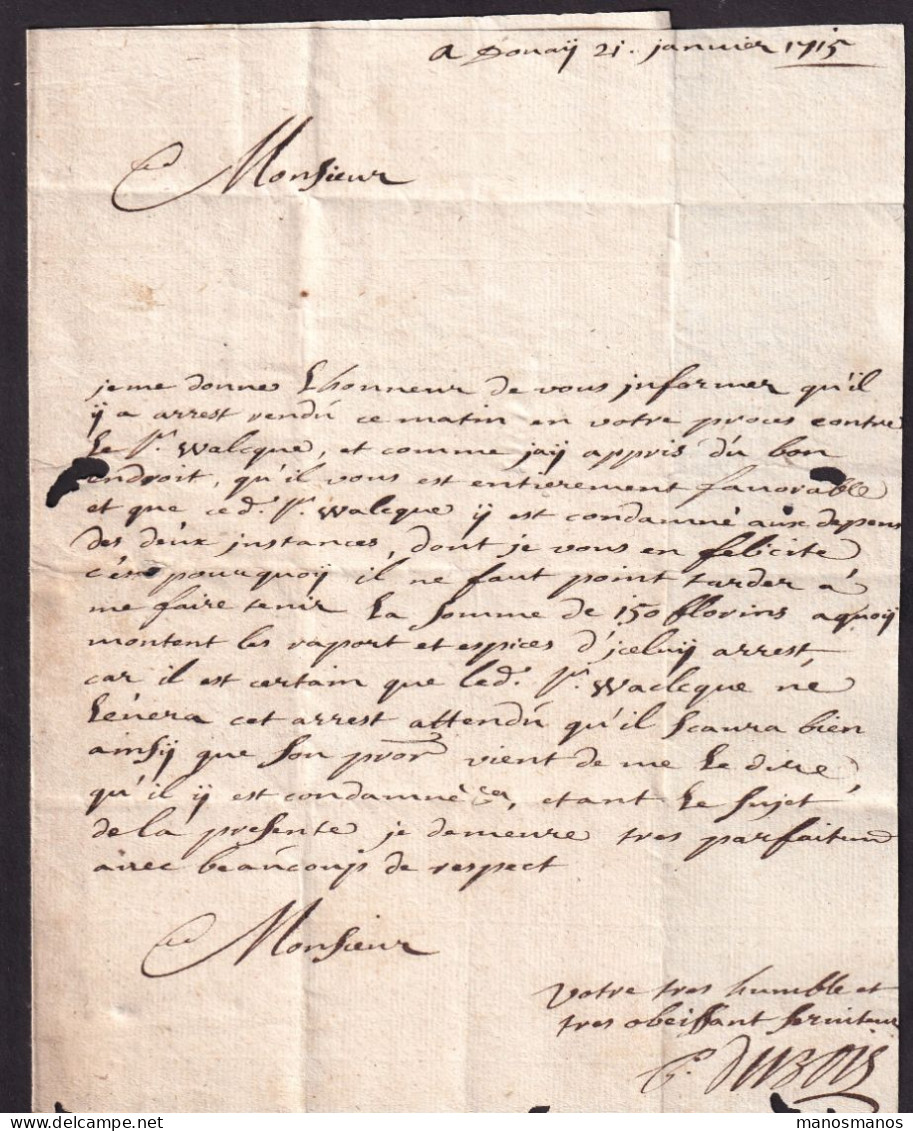 A Douaÿ 21. janvier 1715
Monsieur
je me donne Lhonneur de vous jnformer qu'il
ÿ a arrest rendu ce matin en votre proces contre
Le Sr. Walcque, et comme jaÿ appris du bon
endroit, qu'il vous est entierement favorable
et que ced. Sr. Walcque ÿ est condamné aux depens
des deux jnstances, dont je vous en felicite
c'est pourquoÿ il ne faut point tarder á
me faire tenir La somme de 150 florins a quoÿ
montent les raport et espices d'jceluÿ arrest,
car il est certain que led. Sr. Waelcque ne
Levera cet arrest attendu qu'il scaura bien
ainsÿ que son pror vient de me Le dire
qu'il ÿ est condamné &ca, etant Le sujet
de la presente je demeure tres parfaitemt
avec beaucoup de respect
Monsieur
Votre tres humble et
tres obeissant serviteur
C. duBois
manosmanos